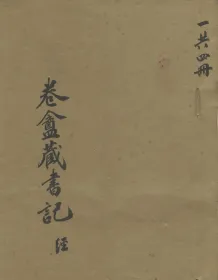 一共四冊
卷盦藏書記 經